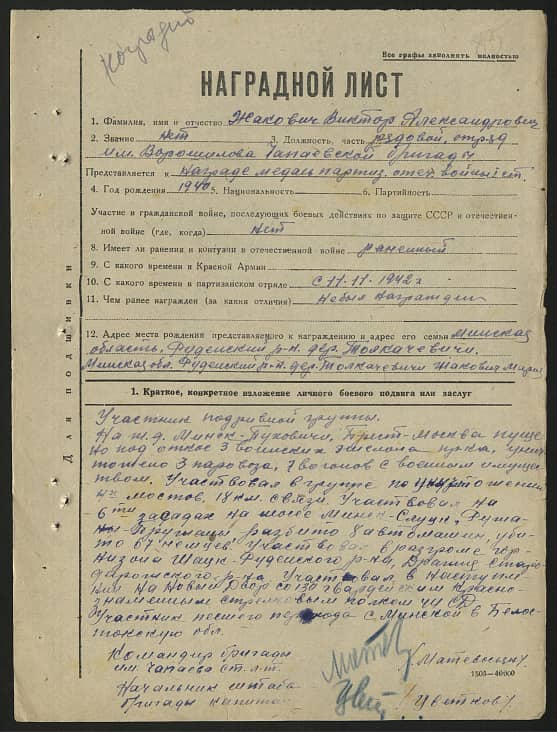 наградить
Все графы заполнять полностью
НАГРАДНОЙ ЛИСТ
1. Фамилия, имя и отчество Жакович Виктор Александрович
2. Звание нет 3. Должность, часть рядовой, отряд
им. Ворошилова Чапаевской бригады
Представляется к награде медаль партиз. отеч. войны I ст.
4. Год рождения 5. Национальность 6. Партийность
Участие в гражданской войне, последующих боевых действиях по защите СССР и отечествен-
ной войне (где, когда) нет
8. Имеет ли ранения и контузии в отечественной войне раненный
9. С какого времени в Красной Армии
10. С какого времени в партизанском отряде с 11-11-1942 г
11. Чем ранее награжден (за какия отличия) небыл награжден
12. Адрес места рождения представляемого к награждению и адрес его семьи Минская
область, Руденский р-н. дер. Толкачевичи.
Минская обл. Руденский р-н. дер. Толкачевичи Жакович Мария
Для подшивки
1. Краткое, конкретное изложение личного боевого подвига или заслуг
Участник подрывной группы.
На ж.д. Минск-Пуховичи, Брест-Москва пуще
но под откос 3 воинских эшелона пр-ка, унич
тожено 3 паровоза, 7 вагонов с военным имущес
твом. Участвовал в группе по уничтожении
4х мостов, 18 км. связи. Участвовал на
6ти засадах на шоссе Минск-Слуцк,
разбито 8 автомашин, уби-
то 67 немцев. Участвовал в разгроме гар-
низона Шацк-Руденского р-на, Старо
дорожского р-на. Участвовал в наступле
нии на Новый двор со 132 гвардейским красно-
знаменным стрелковым полком
Участник пешего перехода с Минской в Белос
токскую обл.
Командир бригады
им. Чапаева ст. л-т. /Матевосян/
1505—40000
Начальник штаба
бригады капитан /Цветков/